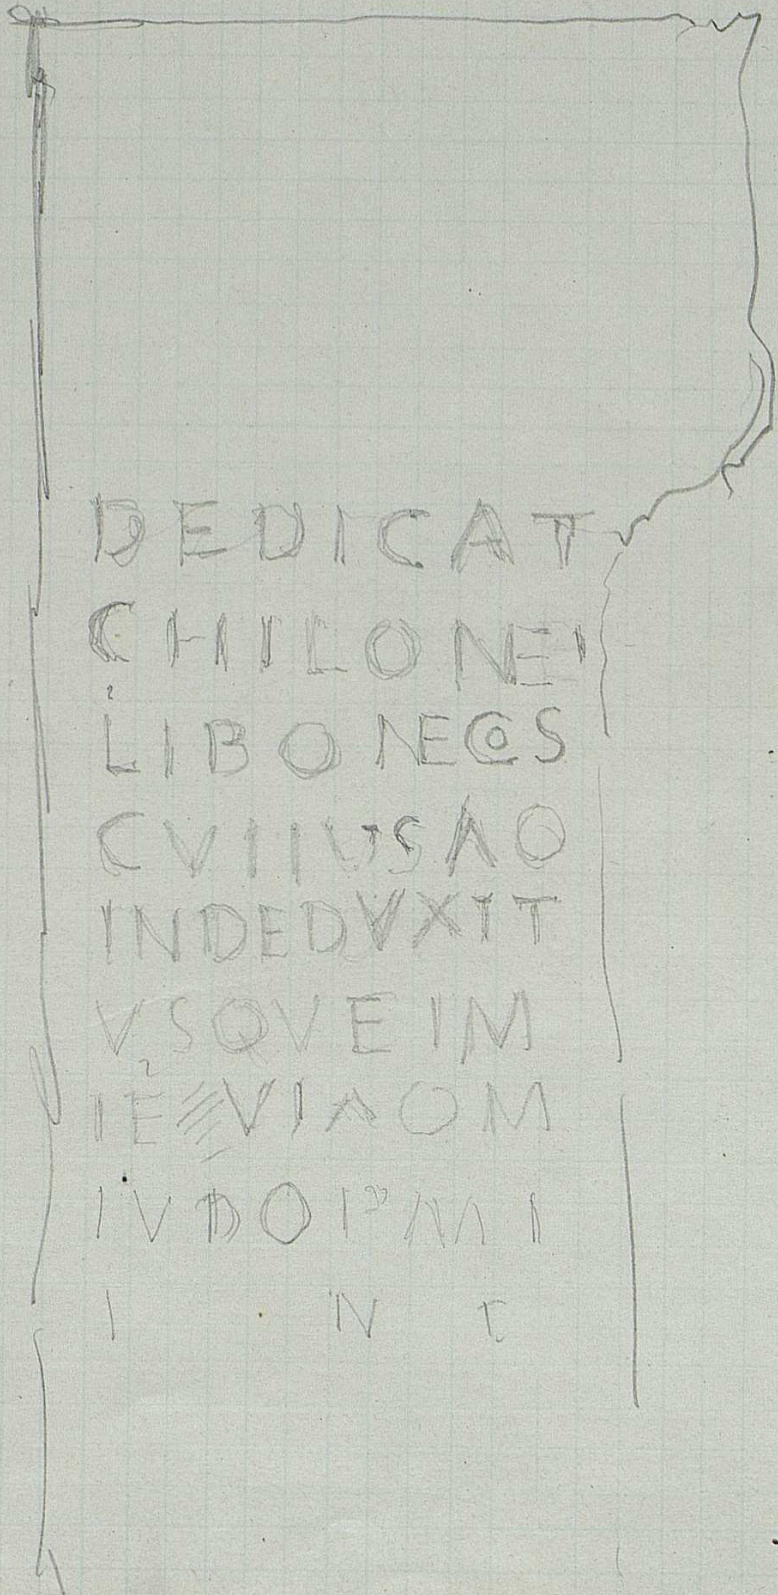 DEDICAT
CHILONE
LIBONECOS
CVIIVSAO
INDEDVXIT
VSQVEIM
IE VIAOM
IVDO
I N